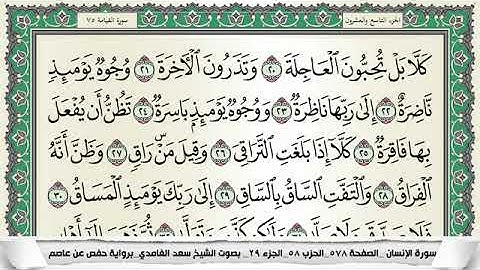 الجزء التاسع والعشرون
سورة القيامة ٧٥
كَلَّا بَلْ تُحِبُّونَ الْعَاجِلَةَ ٢٠ وَتَذَرُونَ الْآخِرَةَ ٢١ وُجُوهٌ يَوْمَئِذٍ
نَّاضِرَةٌ ٢٢ إِلَىٰ رَبِّهَا نَاظِرَةٌ ٢٣ وَوُجُوهٌ يَوْمَئِذٍ بَاسِرَةٌ ٢٤ تَظُنُّ أَن يُفْعَلَ
بِهَا فَاقِرَةٌ ٢٥ كَلَّا إِذَا بَلَغَتِ التَّرَاقِيَ ٢٦ وَقِيلَ مَنْ رَاقٍ ٢٧ وَظَنَّ أَنَّهُ
الْفِرَاقُ ٢٨ وَالْتَفَّتِ السَّاقُ بِالسَّاقِ ٢٩ إِلَىٰ رَبِّكَ يَوْمَئِذٍ الْمَسَاقُ ٣٠
سورة الإنسان _ الصفحة ٥٧٨_ الحزب ٥٨_ الجزء ٢٩ _ بصوت الشيخ سعد الغامدي_ برواية حفص عن عاصم